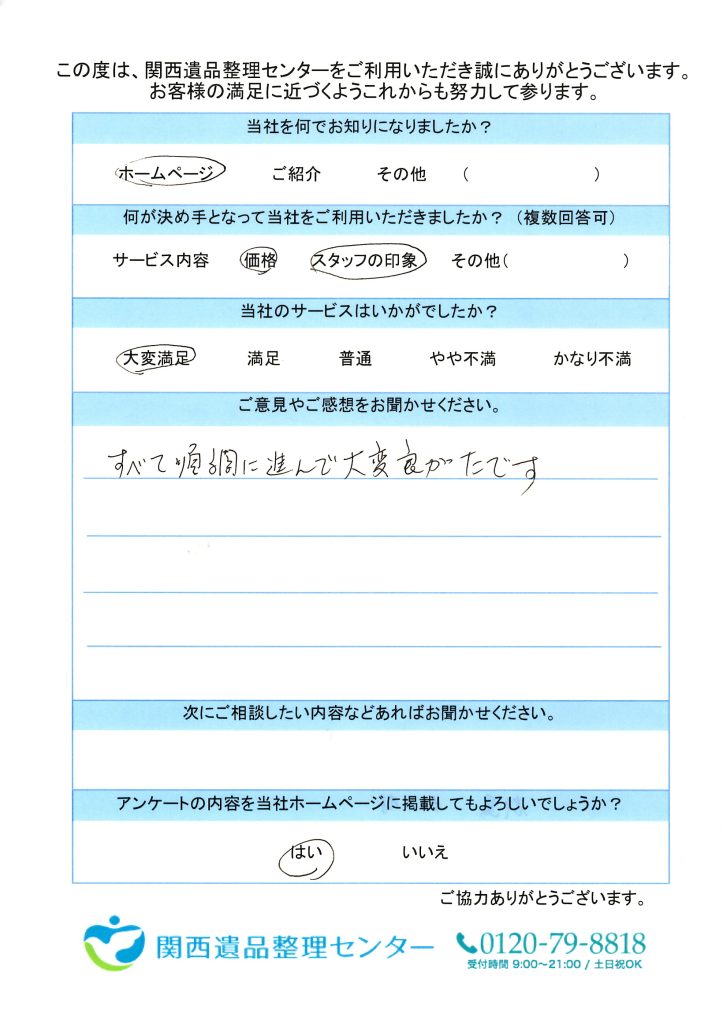 この度は、関西遺品整理センターをご利用いただき誠にありがとうございます。
お客様の満足に近づくようこれからも努力して参ります。
当社を何でお知りになりましたか？
ホームページ ご紹介 その他 （ ）
何が決め手となって当社をご利用いただきましたか？（複数回答可）
サービス内容 価格 スタッフの印象 その他（ ）
当社のサービスはいかがでしたか？
大変満足 満足 普通 やや不満 かなり不満
ご意見やご感想をお聞かせください。
すべて順調に進んで大変良かったです
次にご相談したい内容などあればお聞かせください。
アンケートの内容を当社ホームページに掲載してもよろしいでしょうか？
はい いいえ
ご協力ありがとうございます。
関西遺品整理センター 0120-79-8818
受付時間 9:00～21:00 / 土日祝OK